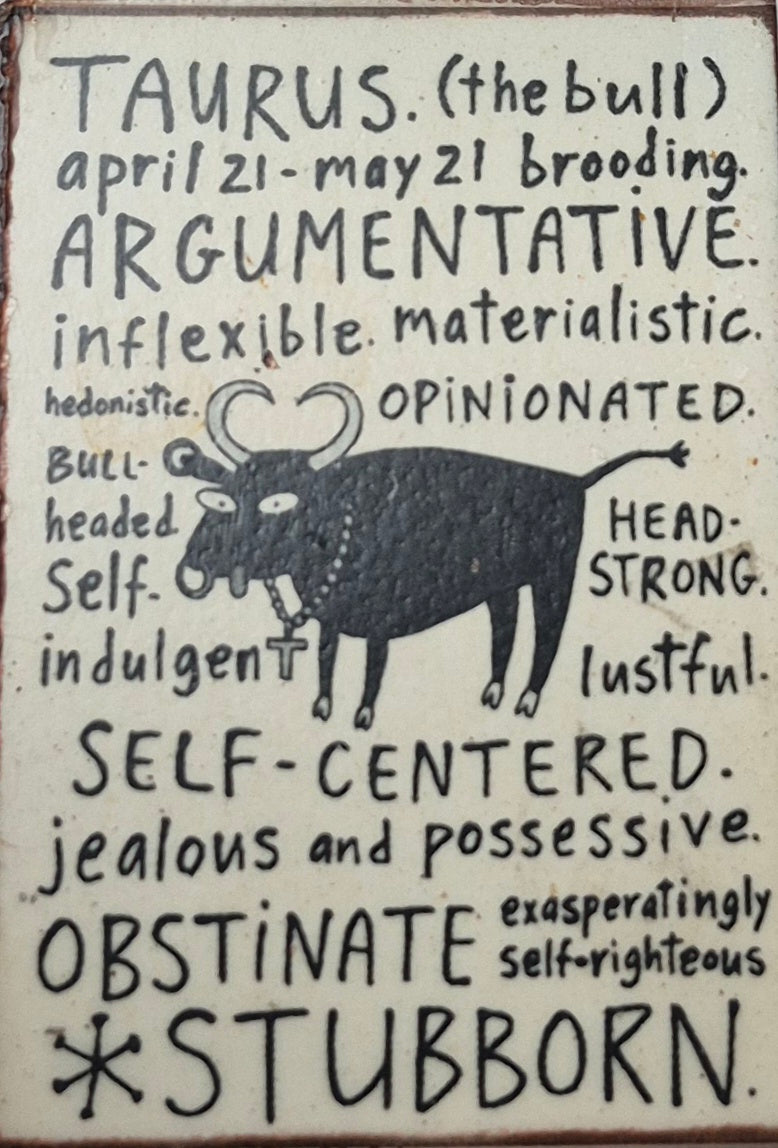 TAURUS. (the bull)
april 21 - may 21 brooding.
ARGUMENTATiVE.
inflexible. materialistic.
hedonistic. OPiNiONATED.
BULL-
headed
Self-
indulgenT
HEAD-
STRONG.
lustful.
SELF-CENTERED.
jealous and possessive.
OBSTiNATE exasperatingly
self-righteous
*STUBBORN.